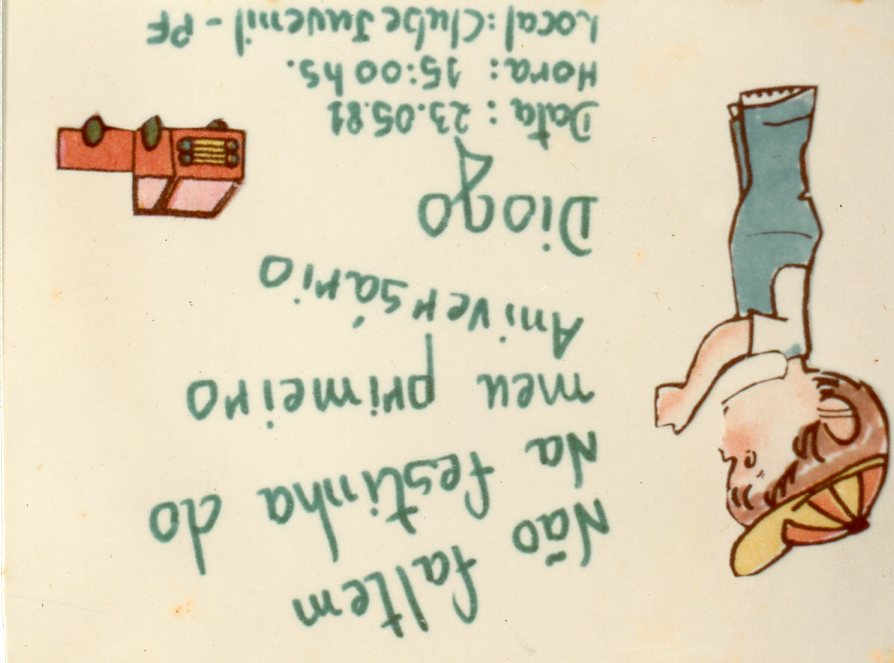 Não faltem
Na festinha do
meu primeiro
Aniversário
Diogo
Data: 23.05.81
Hora: 15:00hs.
Local: Clube Juvenil - PF